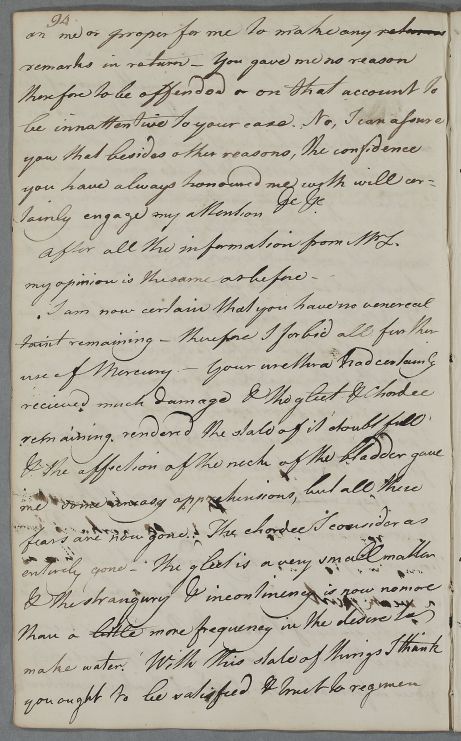 94
on me or proper for me to make any returns
remarks in return – You gave me no reason
therefore to be offended or on that account to
be innattentive to your case. No, I can assure
you that besides other reasons, the confidence
you have always honoured me with will cer=
tainly engage my attention &c &c
After all the information from Mr L.
my opinion is the same as before –
I am now certain that you have no venereal
taint remaining – therefore I forbid all further
use of Mercury. – Your urethra had certainly
recieved much damage & the gleet & Chordee
remaining rendered the state of it doubtfull
& the affection of the neck of the bladder gave
me some uneasy apprehensions, but all these
fears are now gone. The chordee I consider as
entirely gone – The gleet is a very small matter
& the strangury & incontinency is now no more
than a little more frequency in the desire to
make water. With this state of things I think
you ought to be satisfied & trust to regimen